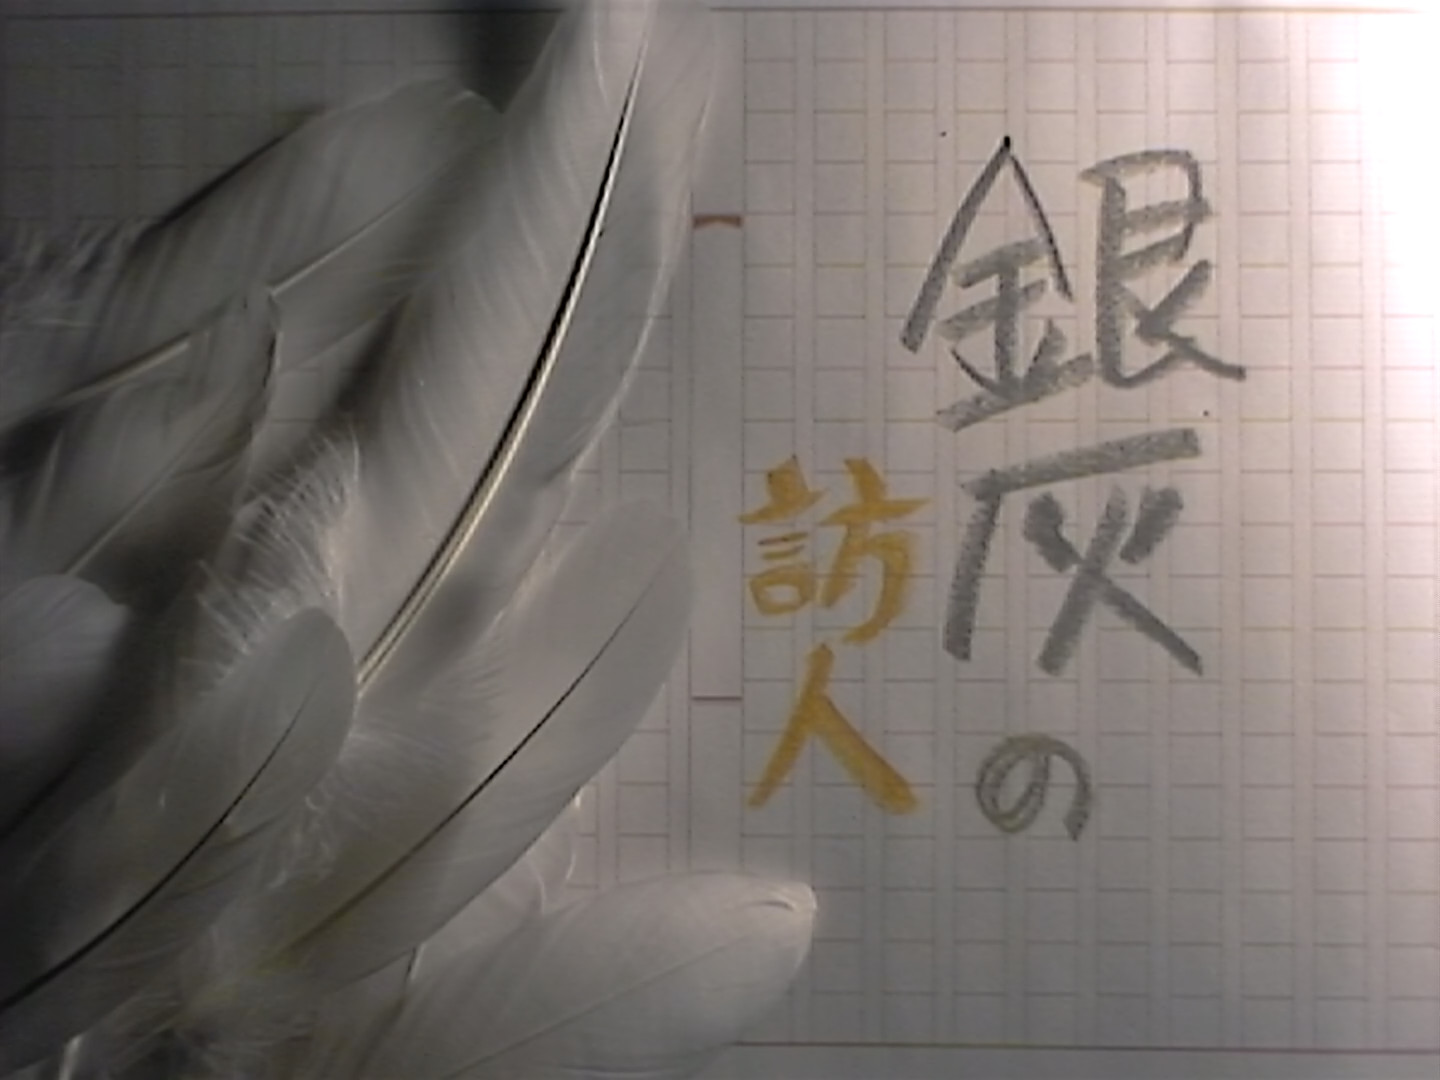 銀灰の
訪人